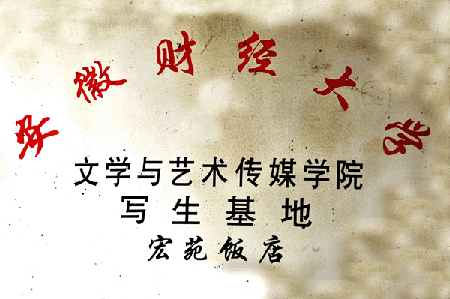 安徽财经大学
文学与艺术传媒学院
写生基地
宏苑饭店